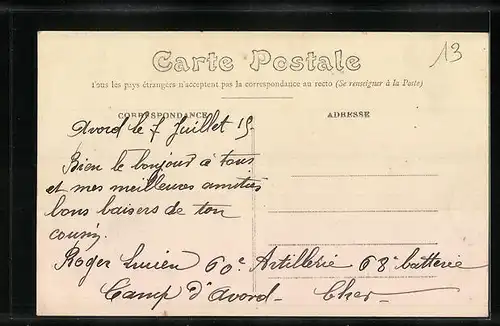 Carte Postale
13
Tous les pays étrangers n'acceptent pas la correspondance au recto (Se renseigner à la Poste)
CORRESPONDANCE
ADRESSE
Avord le 7 Juillet 15.
Bien le bonjour à tous
et mes meilleures amitiés
bons baisers de ton
cousin.
Roger Lucien 60e Artillerie 68e batterie
Camp d'Avord - Cher -